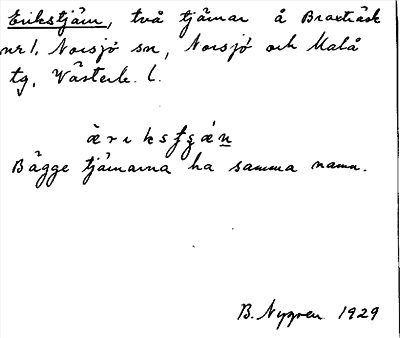 Erikstjärn, två tjärnar å Braxträsk
nr 1, Norsjö sn, Norsjö och Malå
tg, Västerb. l.
Bägge tjärnarna ha samma namn.
B. Nygren 1929